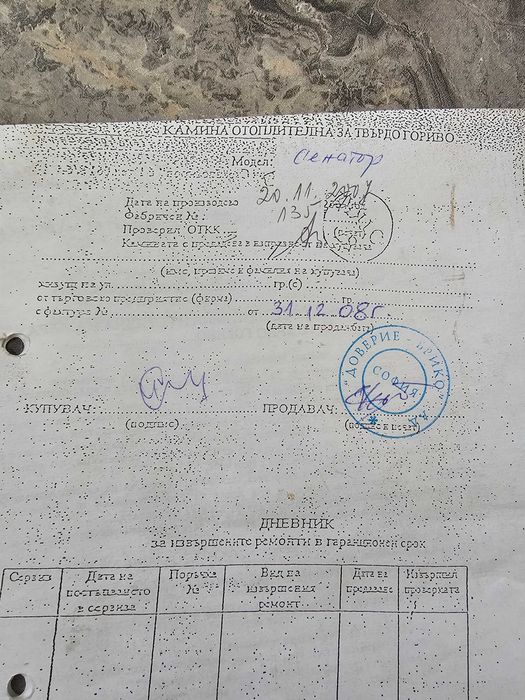 КАМИНА ОТОПЛИТЕЛНА ЗА ТВЪРДО ГОРИВО
Модел: Сенатор
Дата на производство 20.11.2007
Фабричен №: 135
Проверил ОТКК
Камината е продадена в изправност на купувача
(име, презиме и фамилия на купувача)
живущ на ул. гр.(с)
от търговско предприятие (фирма) гр.
с фактура № от 31.12.08г.
(дата на продажбата)
"ДОВЕРИЕ - БРИКО" АД
СОФИЯ
КУПУВАЧ: ПРОДАВАЧ:
(подпис) (подпис и печат)
ДНЕВНИК
за извършените ремонти в гаранционен срок
Сервиз Дата на постъпването в сервиза Поръчка № Вид на извършения ремонт Дата на предаване Извършил проверката